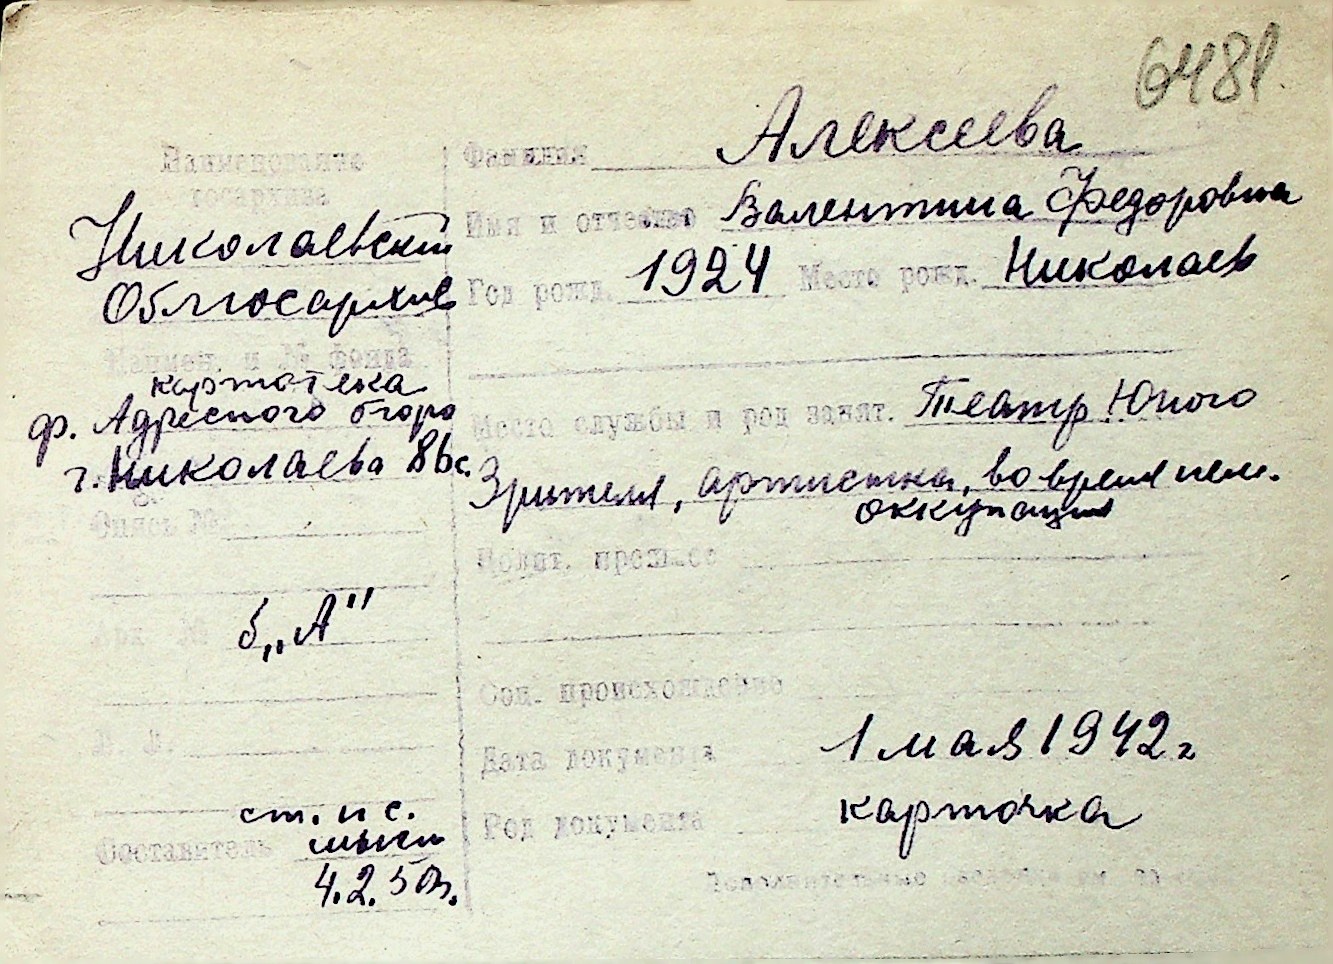 6481.
Наименование
госархива
Николаевский
Облгосархив
Наимен. и № фонда
картотека
ф. Адресного бюро
г. Николаева 86с.
Опись №
Арх №
б„А"
Составитель
ст. н с.
4.2.50г.
Фамилия Алексеева
Имя и отчество Валентина Федоровна
Год рожд. 1924 Место рожд. Николаев
Место службы и род занят. Театр Юного
Зрителя, артистка, во время нем.
оккупации
Полит. прош-ое
Соц. происхождение
Дата документа 1 мая 1942 г
Род документа карточка
Дополнительные сведения см. на